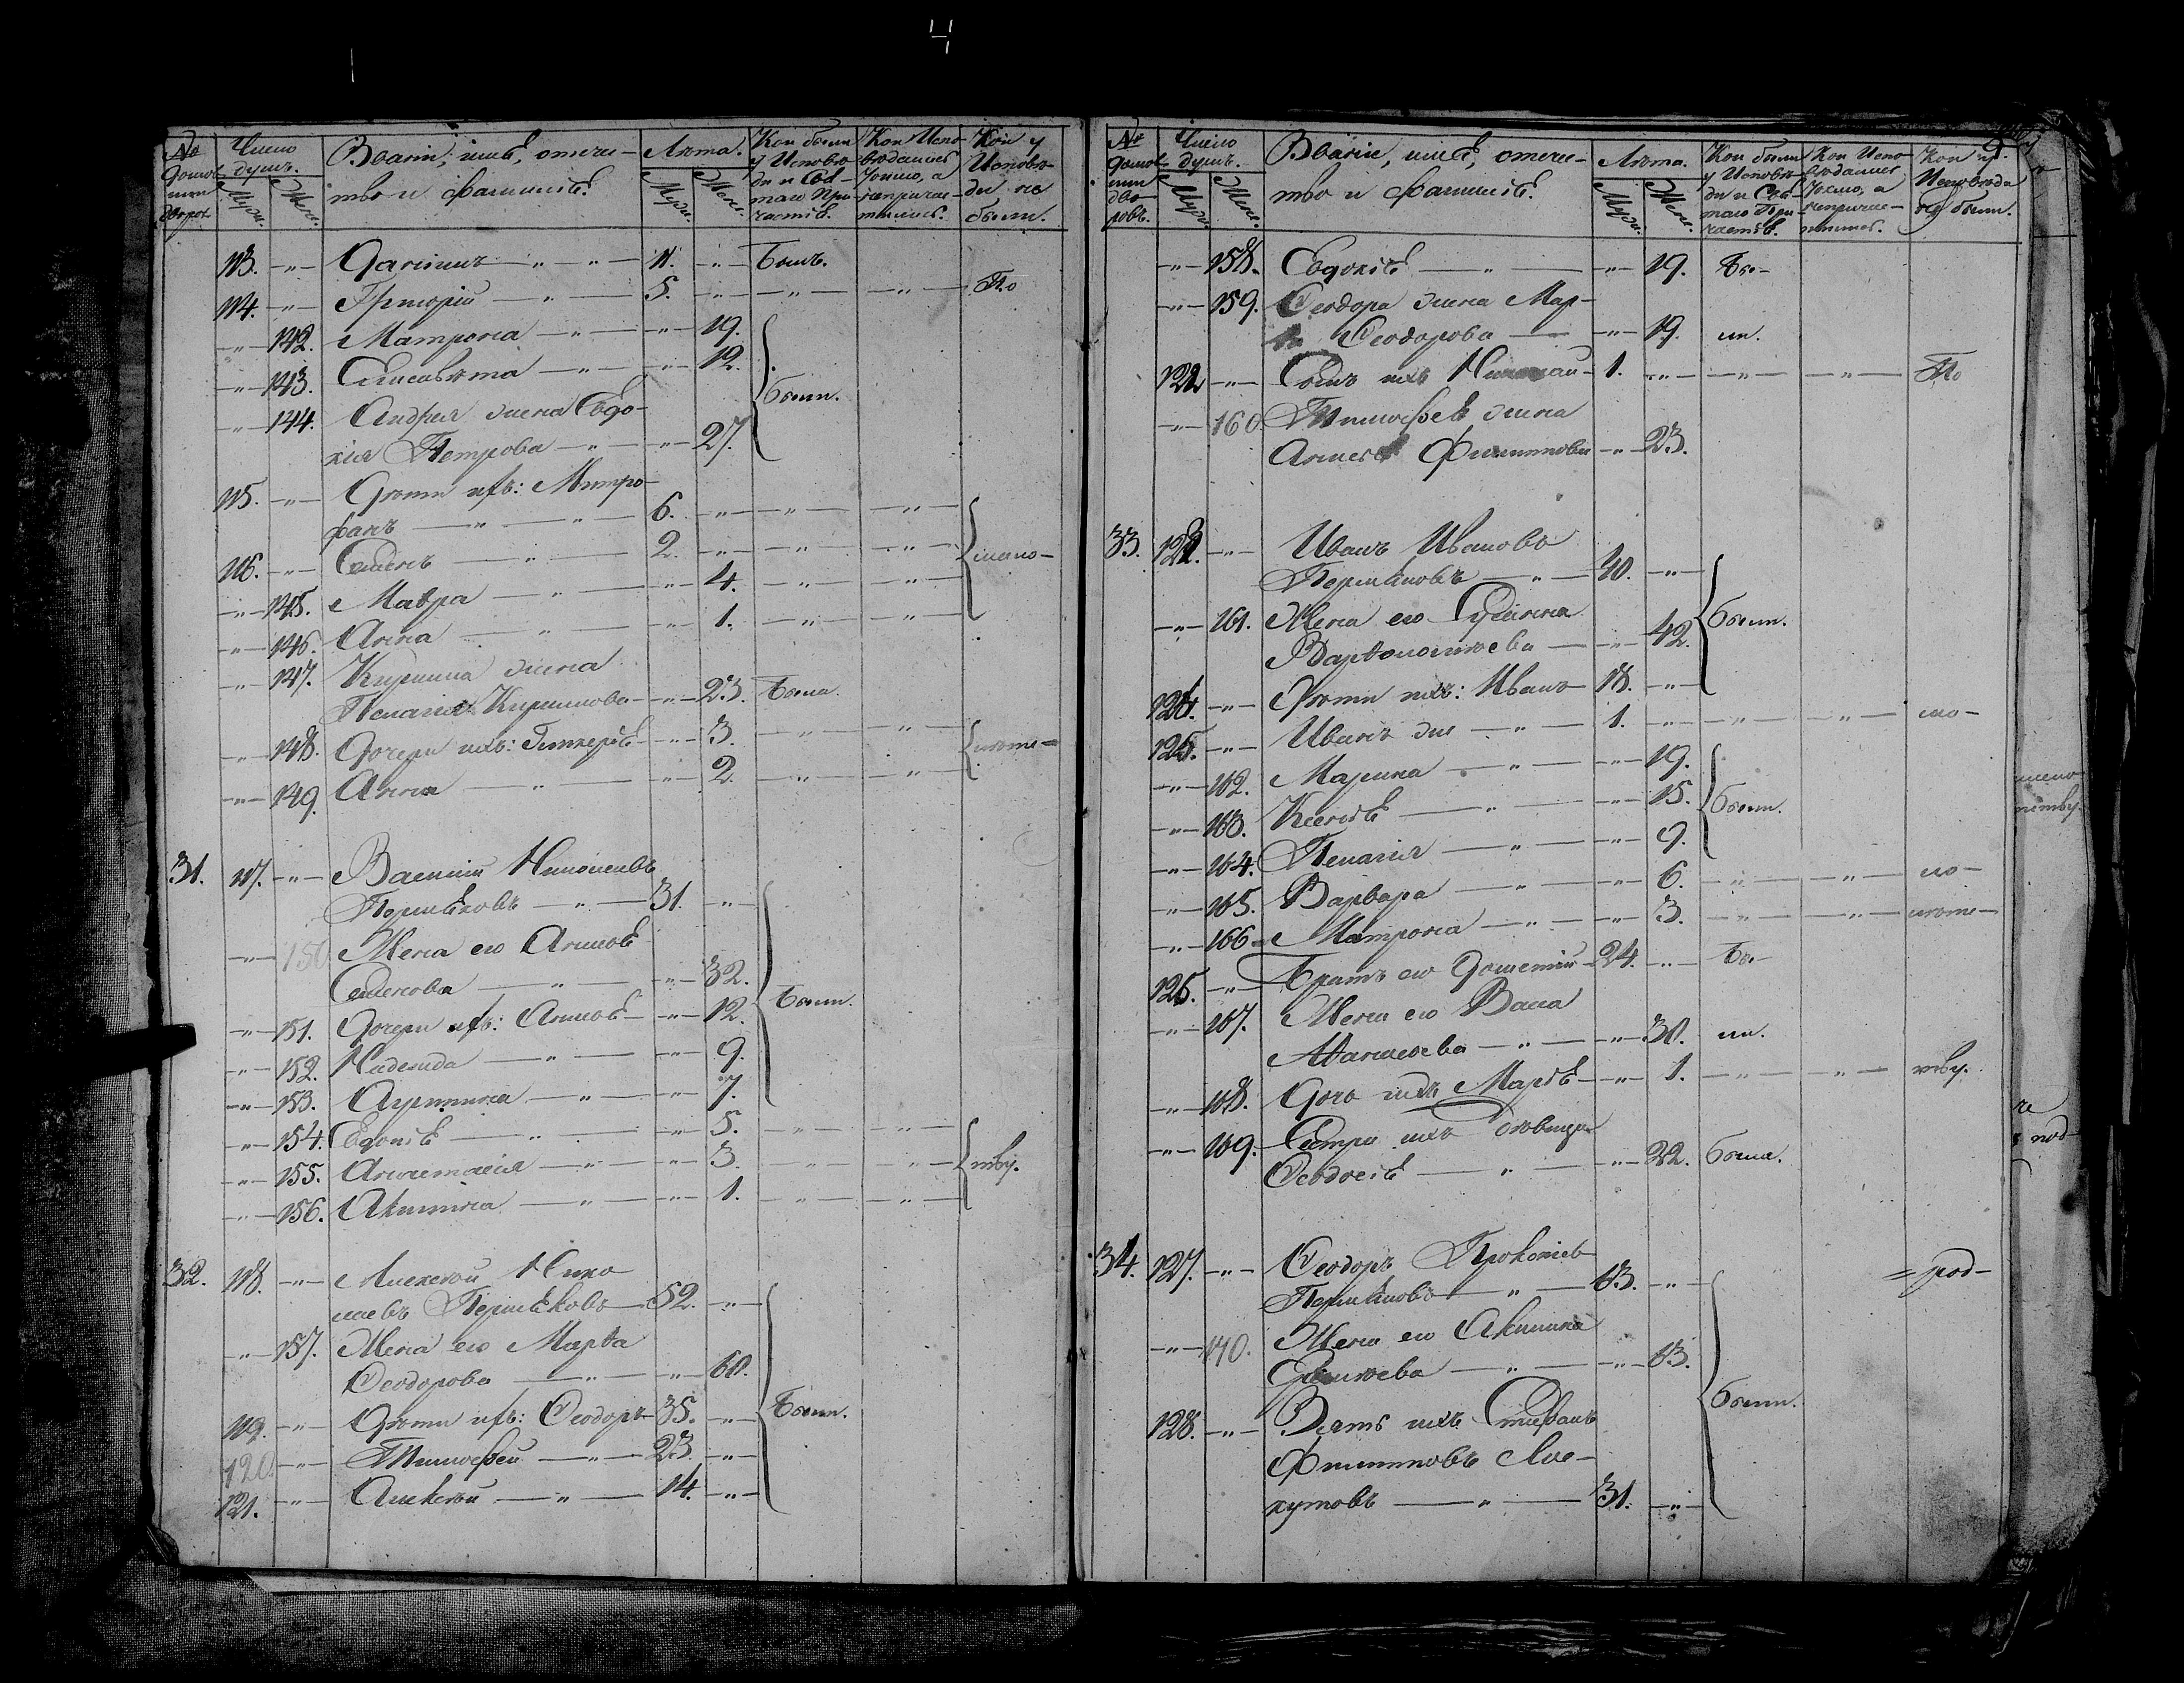 4
№ домов или дворов.
Число душъ.
Муж. Жен.
Званія, имя, отече-
ство и фамилія.
Лѣта.
Муж. Жен.
Кои были у Исповѣ-
ди и Свя-
таго При-
частія.
Кои Испо-
вѣдались
токмо, а
непричас-
тились.
Кои у
Исповѣ-
ди не
были.
113. -"- Даніилъ -"- 11. -"- Былъ.
114. -"- Григорій -"- 5. -"- -"- -"- По
-"- 142. Матрона -"- -"- 19.
-"- 143. Елисавета -"- -"- 12.
Были.
-"- 144. Андрея жена Евдо-
кія Петрова -"- -"- 27.
115. -"- Дѣти ихъ: Митро-
фанъ -"- 6. -"- -"- -"-
116. -"- Семенъ -"- 2. -"- -"- -"-
мало-
-"- 145. Мавра -"- -"- 4. -"- -"-
-"- 146. Анна -"- -"- 1. -"- -"-
-"- 147. Кирилла жена
Пелагія Кириллова -"- 23. Была.
-"- 148. Дочери ихъ: Гликерія -"- 3. -"- -"-
лѣт-
-"- 149. Анна -"- -"- 2. -"- -"-
31. 117. -"- Василій Николаевъ
Пермяковъ -"- 31. -"-
-"- 150 Жена его Анисія
Семенова -"- -"- 32.
Были.
-"- 151. Дочери ихъ: Анисія -"- 12.
-"- 152. Надежда -"- -"- 9.
-"- 153. Агрипина -"- -"- 7.
-"- 154. Евдокія -"- -"- 5. -"- -"-
-"- 155. Анастасія -"- -"- 3. -"- -"-
тву.
-"- 156. Акилина -"- -"- 1. -"- -"-
32. 118. -"- Алексѣй Нико-
лаевъ Пермяковъ 52. -"-
-"- 157. Жена его Марѳа
Ѳеодорова -"- -"- 60.
119. -"- Дѣти ихъ: Ѳеодоръ 35. -"-
Были.
120. -"- Тимоѳей -"- 23. -"-
121. -"- Алексѣй -"- 14. -"-
№ домов или дво-
ровъ.
Число душъ.
Муж. Жен.
Званія, имя, отече-
тво и фамилія.
Лѣта.
Муж. Жен.
Кои были
у Исповѣ-
ди и Свя-
таго При-
частія.
Кои Испо-
вѣдались
токмо, а
непричас-
тились.
Кои у
Исповѣди
не были.
-"- 158. Евдокія -"- -"- 19. Бы-
-"- 159. Ѳеодора жена Мар-
Ѳеодорова -"- 19. ли.
122 -"- Сынъ ихъ Николай 1. -"- -"- -"- По
-"- 160. Тимоѳея жена
Анисія Филиппова -"- 23.
33. 123. -"- Иванъ Ивановъ
Пермяковъ -"- 40. -"-
-"- 161. Жена его Гудіанна
Варѳоломѣева -"- 42.
Были.
124. -"- Дѣти ихъ: Иванъ 18. -"-
125. -"- Иванъ же -"- 1. -"- -"- -"- ло-
-"- 162. Марина -"- -"- 19.
-"- 163. Ксенія -"- -"- 15.
Были.
-"- 164. Пелагія -"- -"- 9.
-"- 165. Варвара -"- -"- 6. -"- -"- ло-
-"- 166 Матрона -"- -"- 3. -"- -"- лѣт-
126. -"- Братъ его Дометій 24. -"- Бы-
-"- 167. Жена его Васса
-"- -"- 30. ли.
-"- 168. Дочь ихъ Марія -"- 1. -"- -"- тву.
-"- 169. Сестра ихъ дѣвица
Ѳеодосія -"- -"- 22. Была.
34. 127. -"- Ѳеодоръ Прокопіев
Пермяковъ -"- 63. -"- = род-
-"- 170. Жена его Акилина
-"- -"- 63.
Были.
128. -"- Зять ихъ Стефанъ
Филипповъ Лос-
кутовъ -"- 31. -"-